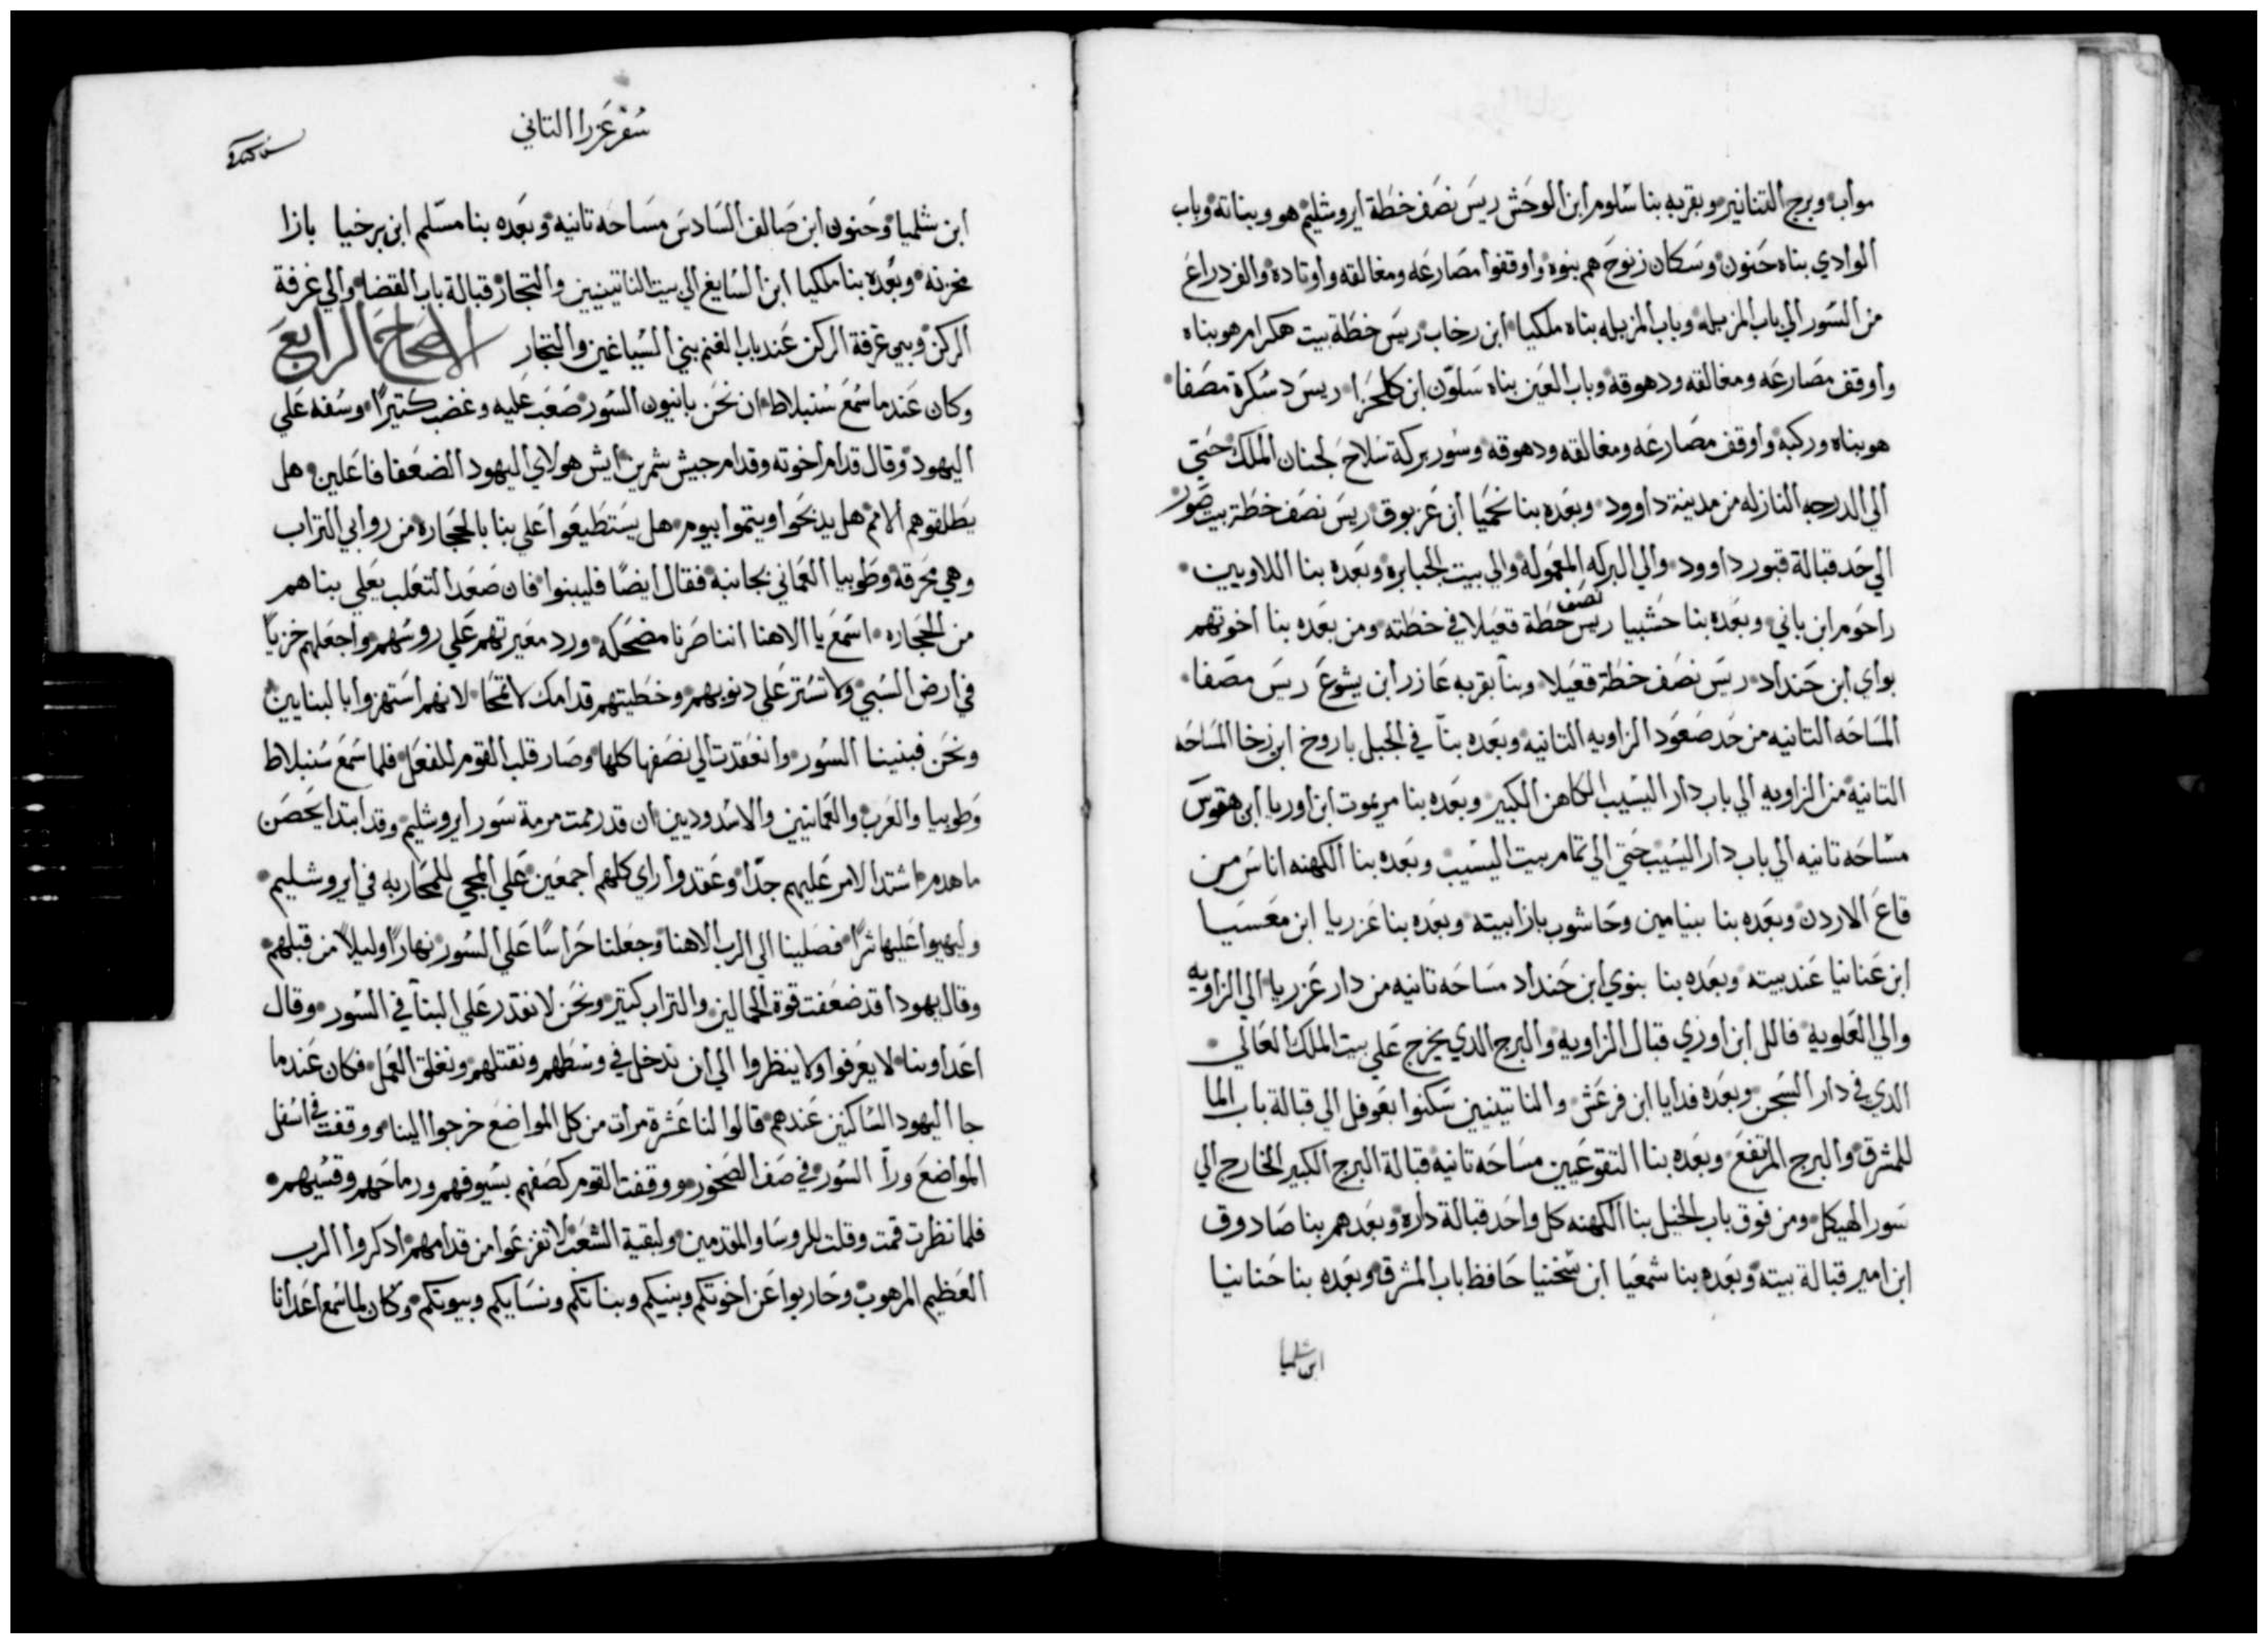 مواب وبرج التنانير وبقربه بنا سلوم ابن الوحش ريس نصف خطة ايروشليم هو وبناته وباب
الوادي بناه حنون وسكان زنوح هم بنوه واوقفوا مصارعه ومغالقه واوتاده والف دراع
من السور الي باب المزبله وباب المزبله بناه ملكيا ابن رخاب ريس خطة بيت هكرام هو بناه
واوقف مصارعه ومغالقه ودهوقه وباب العين بناه سلون ابن كلحزا ريس دسكرة مصفا
هو بناه وركبه واوقف مصارعه ومغالقه ودهوقه وسور بركة سلاح لجنان الملك حتي
الي الدرجه النازله من مدينة داوود وبعده بنا نحميا ابن عزبوق ريس نصف خطة بيت صور
الي حد قبالة قبور داوود والي البركه المعموله والي بيت الجبابره وبعده بنا اللاويين
راحوم ابن باني وبعده بنا حشبيا ريس نصف خطة قعيلا في خطته ومن بعده بنا اخوتهم
بواي ابن حنداد ريس نصف خطة قعيلا وبنا بقربه عازر ابن يشوع ريس مصفا
المساحه التانيه من حد صعود الزاويه التانيه وبعده بنا في الجبل باروخ ابن زخا المساحه
التانيه من الزاويه الي باب دار اليسيب الكاهن الكبير وبعده بنا مريموت ابن اوريا ابن هقوس
مساحه تانيه الي باب دار اليسيب حتي الي تمام بيت اليسيب وبعده بنا الكهنه اناس من
قاع الاردن وبعده بنا بنيامين وحاشوب بازا بيته وبعده بنا عزريا ابن معسيا
ابن عنانيا عند بيته وبعده بنا بنوي ابن حنداد مساحه تانيه من دار عزريا الي الزاويه
والي العلويه فالل ابن اوزي قبال الزاويه والبرج الدي يخرج علي بيت الملك العالي
الدي في دار السجن وبعده فدايا ابن فرعش والناتينيين سكنوا بعوفل الي قبالة باب الما
للمشرق والبرج المرتفع وبعده بنا التقوعيين مساحه تانيه قبالة البرج الكبير الخارج الي
سور الهيكل ومن فوق باب الخيل بنا الكهنه كل واحد قبالة داره وبعدهم بنا صادوق
ابن امير قبالة بيته وبعده بنا شمعيا ابن شخنيا حافظ باب المشرق وبعده بنا حنانيا
ابن شلميا
سفر عزرا التاني
ابن شلميا وحنون ابن صالف السادس مساحه تانيه وبعده بنا مسلم ابن برخيا بازا
مخزنه وبعده بنا ملكيا ابن السايغ الي بيت الناتينيين والتجار قبالة باب القضا والي غرفة
الركن وبين غرفة الركن عند باب الغنم بني السياغين والتجار الاصحاح الرابع
وكان عندما سمع سنبلاط ان نحن بانيون السور صعب عليه وغضب كتيرا وسفه علي
اليهود وقال قدام اخوته وقدام جيش شمرين ايش هولاي اليهود الضعفا فاعلين هل
يطلقوهم الامم هل يدبحوا ويتموا بيوم هل يستطيعوا علي بنا بالحجاره من روابي التراب
وهي محرقه وطوبيا العماني بجانبه فقال ايضا فليبنوا فان صعد التعلب يعلي بناهم
من الحجاره اسمع يا الاهنا اننا صرنا مضحكه ورد معيرتهم علي روسهم واجعلهم خزيا
في ارض السبي ولا تستر علي دنوبهم وخطيتهم قدامك لا تمحا لانهم استهزوا بالبنايين
ونحن فبنينا السور وانعقدت الي نصفها كلها وصار قلب القوم للفعل فلما سمع سنبلاط
وطوبيا والعرب والعمانيين والاسدوديين ان قد رممت مرمة سور ايروشليم وقد ابتدا يحصن
ما هدم اشتد الامر عليهم جدا وعقدوا راي كلهم اجمعين علي المجي للمحاربه في ايروشليم
وليهيوا عليها شرا فصلينا الي الرب الاهنا وجعلنا حراسا علي السور نهارا وليلا من قبلهم
وقال يهودا قد ضعفت قوة الحمالين والتراب كتير ونحن لا نقدر علي البنا في السور وقال
اعداونا لا يعرفوا ولا ينظروا الي ان ندخل في وسطهم ونقتلهم ونغلق العمل فكان عندما
جا اليهود الساكنين عندهم قالوا لنا عشرة مرات من كل المواضع خرجوا الينا ووقفت في اسفل
المواضع ورا السور في صف الصخور ووقفت القوم كصفهم بسيوفهم ورماحهم وقسيهم
فلما نظرت قمت وقلت للروسا والمقدمين ولبقية الشعب لا تفزعوا من قدامهم ادكروا الرب
العظيم المرهوب وحاربوا عن اخوتكم وبنيكم وبناتكم ونسايكم وبيوتكم وكان لما سمع اعدانا